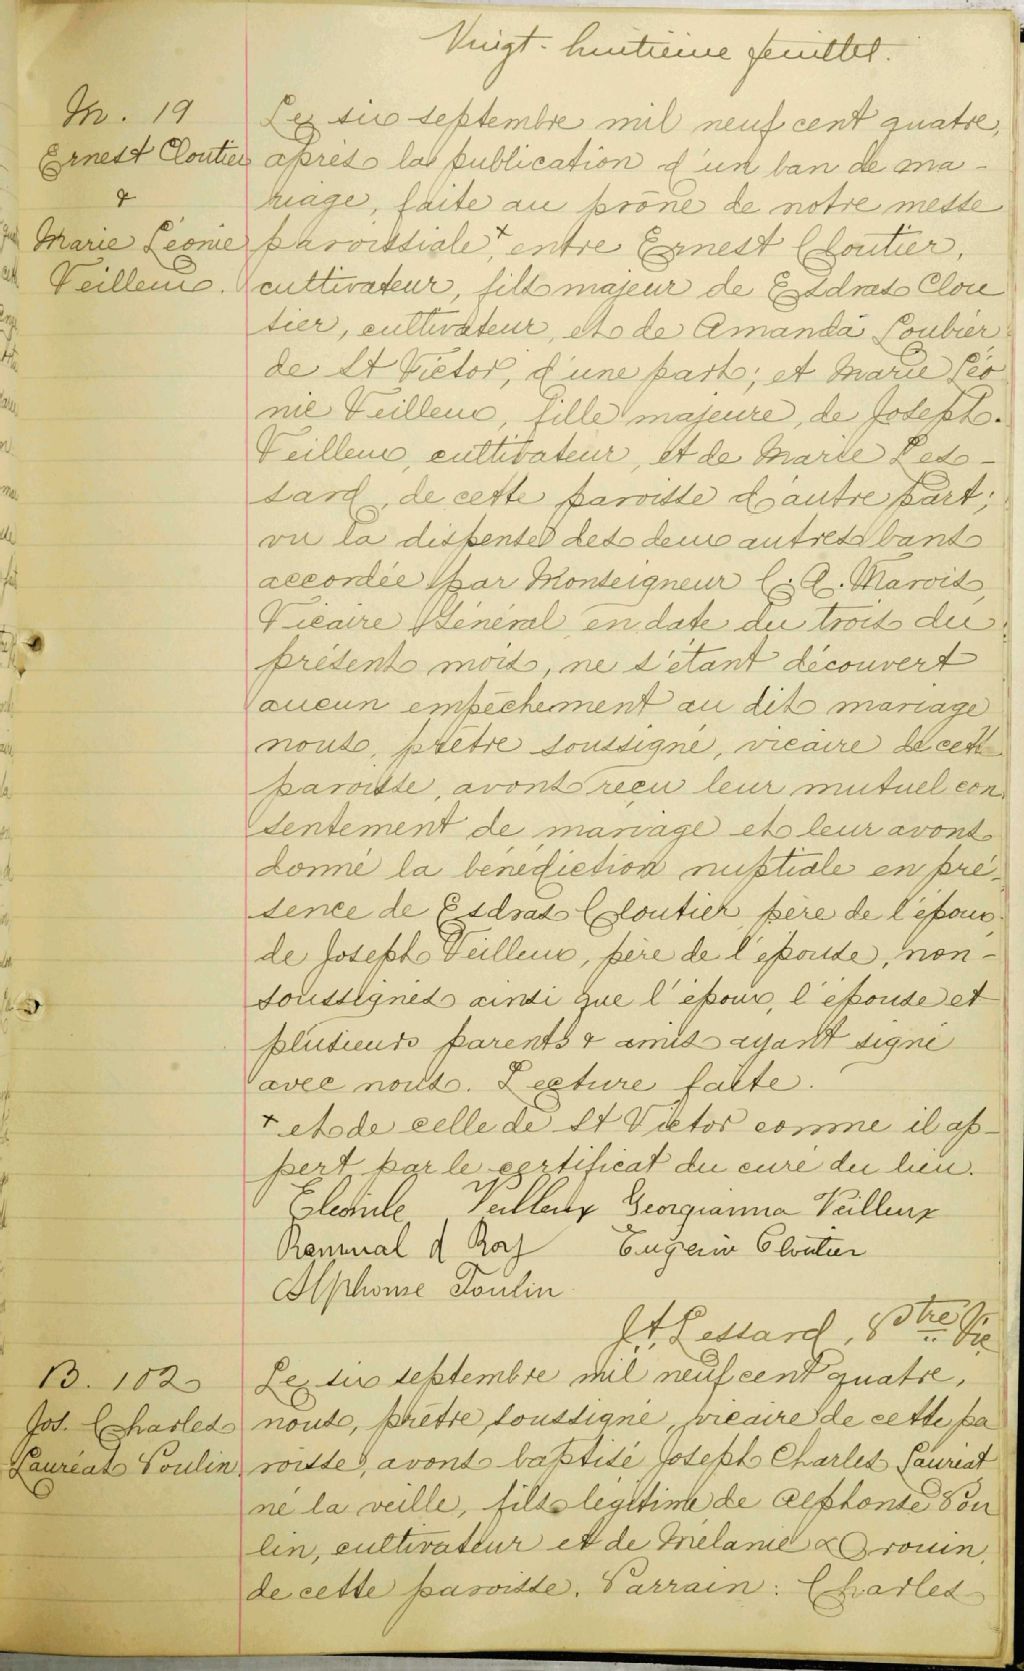 Vingt-huitième feuillet.
M. 19
Ernest Cloutier
&
Marie Léonie
Veilleux.
Le six septembre mil neuf cent quatre,
après la publication d'un ban de ma-
riage, faite au prône de notre messe
paroissiale x, entre Ernest Cloutier,
cultivateur, fils majeur de Esdras Clou
tier, cultivateur, et de Amanda Loubier
de St Victor, d'une part; et Marie Léo
nie Veilleux, fille majeure, de Joseph
Veilleux, cultivateur, et de Marie Les-
sard, de cette paroisse d'autre part;
vu la dispense des deux autres bans
accordée par Monseigneur C. A. Marois,
Vicaire Général en date du trois du
présent mois, ne s'étant découvert
aucun empêchement au dit mariage
nous, prêtre soussigné, vicaire de cette
paroisse, avons reçu leur mutuel con
sentement de mariage et leur avons
donné la bénédiction nuptiale en pré-
sence de Esdras Cloutier père de l'époux,
de Joseph Veilleux, père de l'épouse, non-
soussignés ainsi que l'époux, l'épouse et
plusieurs parents & amis ayant signé
avec nous. Lecture faite.
x et de celle de St Victor comme il ap-
pert par le certificat du curé du lieu.
Veilleux Georgianna Veilleux
Roy Cloutier
Alphonse Poulin
J. A. Lessard, Ptre Vic
B. 102
Jos. Charles
Lauréat Poulin
Le six septembre mil neuf cent quatre,
nous, prêtre soussigné, vicaire de cette pa
roisse, avons baptisé Joseph Charles Lauréat,
né la veille, fils légitime de Alphonse Pou
lin, cultivateur et de Mélanie Drouin,
de cette paroisse. Parrain: Charles